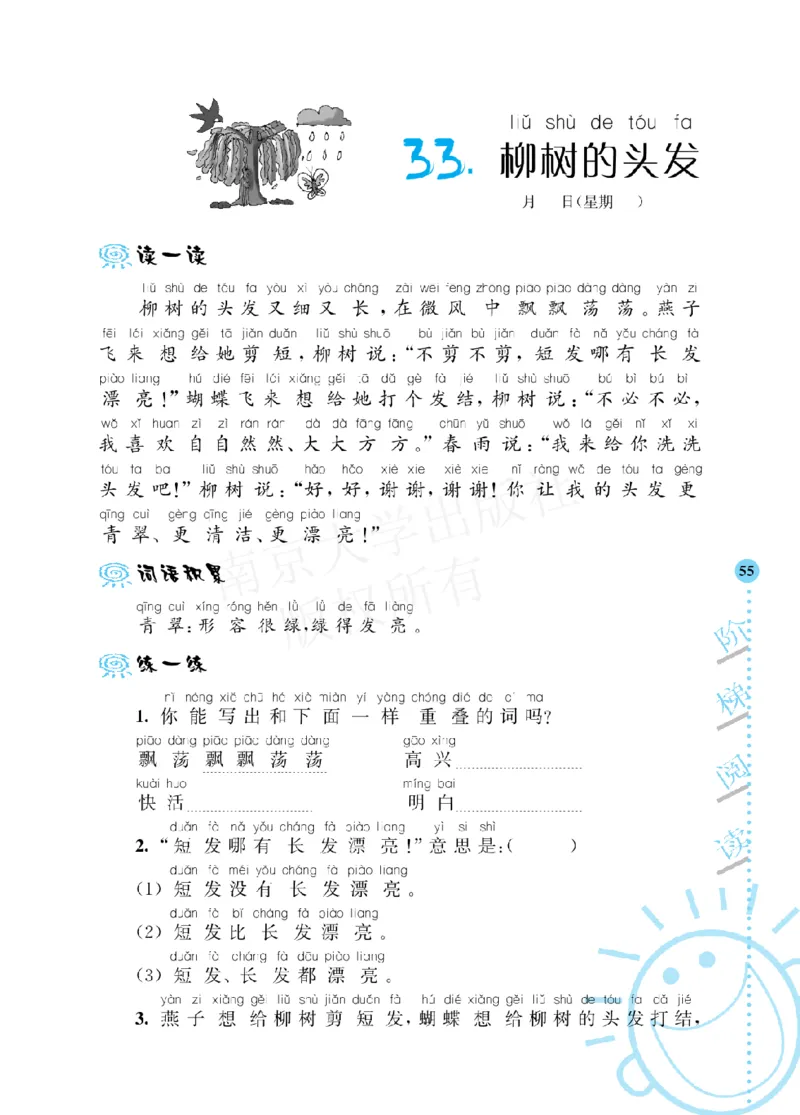 liǔ shù de tóu fa
33. 柳树的头发
月 日(星期 )
读一读
liǔ shù de tóu fa yòu xì yòu cháng zài wēi fēng zhōng piāo piāo dàng dàng yàn zi
柳树的头发又细又长,在微风中飘飘荡荡。燕子
fēi lái xiǎng gěi tā jiǎn duǎn liǔ shù shuō bù jiǎn bù jiǎn duǎn fà nǎ yǒu cháng fà
飞来想给她剪短,柳树说:“不剪不剪,短发哪有长发
piào liang hú dié fēi lái xiǎng gěi tā dǎ gè fà jié liǔ shù shuō bú bì bú bì
漂亮!”蝴蝶飞来想给她打个发结,柳树说:“不必不必,
wǒ xǐ huan zì zì rán rán dà dà fāng fāng chūn yǔ shuō wǒ lái gěi nǐ xǐ xi
我喜欢自自然然、大大方方。”春雨说:“我来给你洗洗
tóu fa ba liǔ shù shuō hǎo hǎo xiè xie xiè xie nǐ ràng wǒ de tóu fa gèng
头发吧!”柳树说:“好,好,谢谢,谢谢!你让我的头发更
qīng cuì gèng qīng jié gèng piào liang
青翠、更清洁、更漂亮!”
词语积累
qīng cuì xíng róng hěn lǜ lǜ de fā liàng
青翠:形容很绿,绿得发亮。
练一练
nǐ néng xiě chū hé xià miàn yí yàng chóng dié de cí ma
1. 你能写出和下面一样重叠的词吗?
piāo dàng piāo piāo dàng dàng gāo xìng
飘荡 飘飘荡荡 高兴
kuài huo míng bai
快活 明白
duǎn fà nǎ yǒu cháng fà piào liang yì si shì
2. “短发哪有长发漂亮!”意思是:( )
duǎn fà méi yǒu cháng fà piào liang
(1) 短发没有长发漂亮。
duǎn fà bǐ cháng fà piào liang
(2) 短发比长发漂亮。
duǎn fà cháng fà dōu piào liang
(3) 短发、长发都漂亮。
yàn zi xiǎng gěi liǔ shù jiǎn duǎn fà hú dié xiǎng gěi liǔ shù de tóu fa dǎ jié
3. 燕子想给柳树剪短发,蝴蝶想给柳树的头发打结,
55
阶
梯
阅
读
南京大学出版社
版权所有